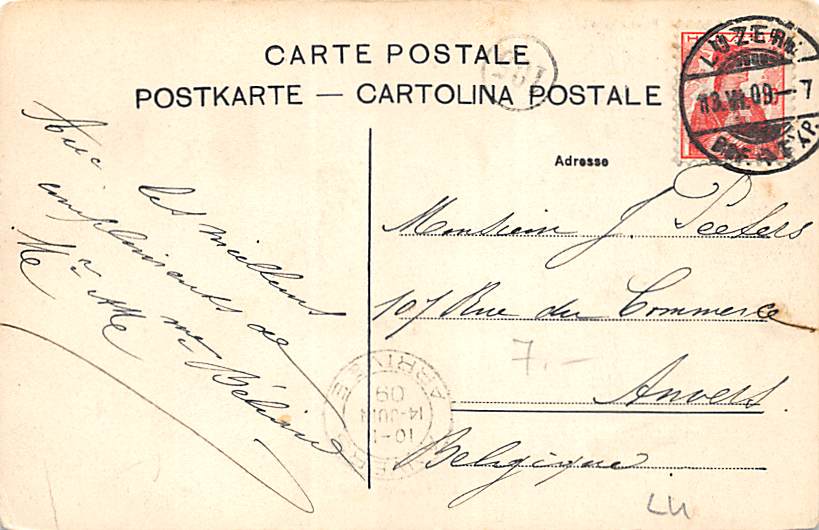 CARTE POSTALE
POSTKARTE — CARTOLINA POSTALE
LUZERN
13.VI.09—7
BRF. EXP.
Adresse
Avec les meilleurs
compliments de
Mr et Me
Monsieur J. Peeters
107 Rue du Commerce
Anvers
Belgique
7.-
ARRIVEE
09
14-JUIN
10-
LU